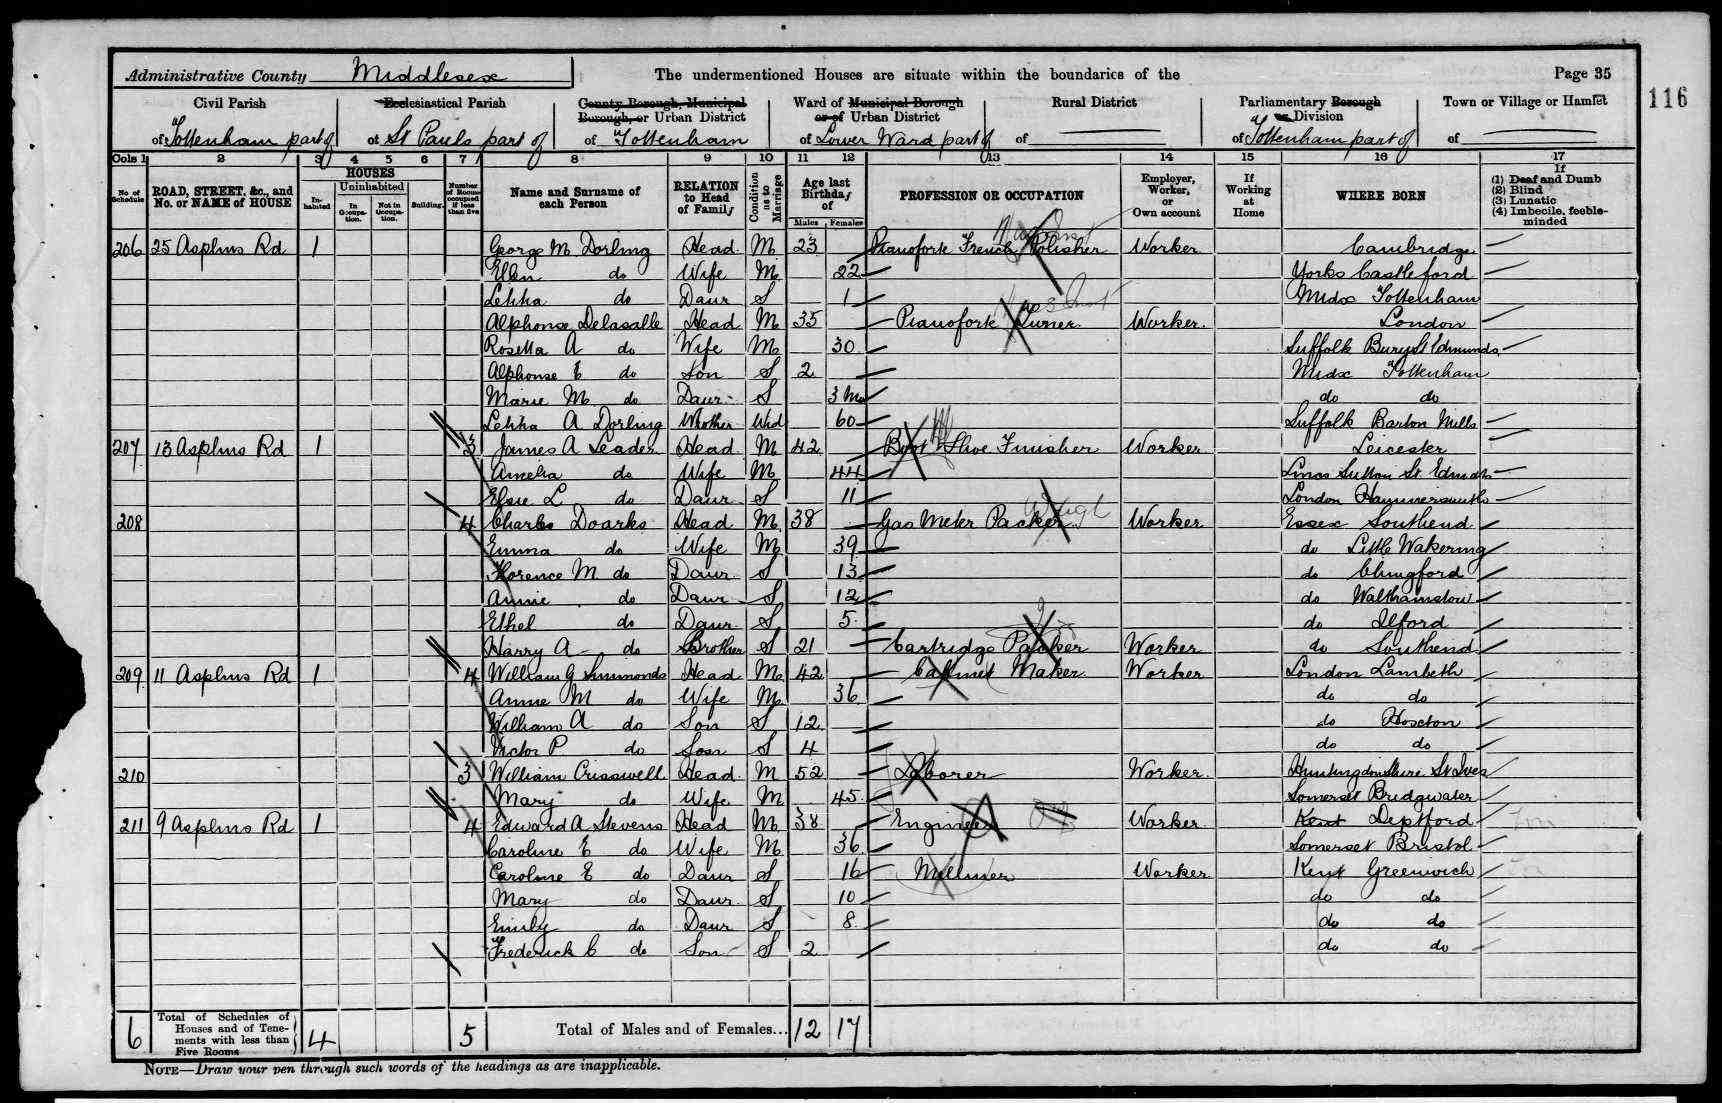 Administrative County Middlesex The undermentioned Houses are situate within the boundaries of the Page 35
116
Civil Parish Ecclesiastical Parish County Borough, Municipal Borough, or Urban District Ward of Municipal Borough or of Urban District Rural District Parliamentary Borough or Division Town or Village or Hamlet
of Tottenham part of of St Pauls part of of Tottenham of Lower Ward part of of of Tottenham part of of
Cols 1 2 3 4 5 6 7 8 9 10 11 12 13 14 15 16 17
No of Schedule ROAD, STREET, &c., and No. or NAME of HOUSE HOUSES Inhabited Uninhabited In Occupation. Not in Occupation. Building. Number of Rooms occupied if less than five Name and Surname of each Person RELATION to Head of Family Condition as to Marriage Age last Birthday of Males Females PROFESSION OR OCCUPATION Employer, Worker, or Own account If Working at Home WHERE BORN If (1) Deaf and Dumb (2) Blind (3) Lunatic (4) Imbecile, feeble-minded
206 25 Asplins Rd 1 George M Dorling Head M 23 Pianoforte French Polisher Worker Cambridge
Ellen do Wife M 22 Yorks Castleford
Letitia do Daur S 1 Midx Tottenham
Alphonse Delasalle Head M 35 Pianoforte Tuner Worker London
Rosetta A do Wife M 30 Suffolk Bury St Edmunds
Alphonse E do Son S 2 Midx Tottenham
Marie M do Daur S 3 Mo do do
Letitia A Dorling Mother Wid 60 Suffolk Barton Mills
207 13 Asplins Rd 1 3 James A Leader Head M 42 Boot & Shoe Finisher Worker Leicester
Amelia do Wife M 44 Lincs Sutton St Edmds
Elsie L do Daur S 11 London Hammersmith
208 4 Charles Doarks Head M 38 Gas Meter Packer Worker Essex Southend
Emma do Wife M 39 do Little Wakering
Florence M do Daur S 13 do Chingford
Annie do Daur S 12 do Walthamstow
Ethel do Daur S 5 do Ilford
Harry A do Brother S 21 Cartridge Packer Worker do Southend
209 11 Asplins Rd 1 4 William G Simmonds Head M 42 Cabinet Maker Worker London Lambeth
Annie M do Wife M 36 do do
William A do Son S 12 do Hoxton
Victor P do Son S 4 do do
210 3 William Crisswell Head M 52 Laborer Worker Huntingdonshire St Ives
Mary do Wife M 45 Somerset Bridgwater
211 9 Asplins Rd 1 4 Edward A Stevens Head M 38 Engineer Worker Kent Deptford
Caroline E do Wife M 36 Somerset Bristol
Caroline E do Daur S 16 Milliner Worker Kent Greenwich
Mary do Daur S 10 do do
Emily do Daur S 8 do do
Frederick C do Son S 2 do do
6 Total of Schedules of Houses and of Tenements with less than Five Rooms 4 5 Total of Males and of Females... 12 17
NOTE—Draw your pen through such words of the headings as are inapplicable.